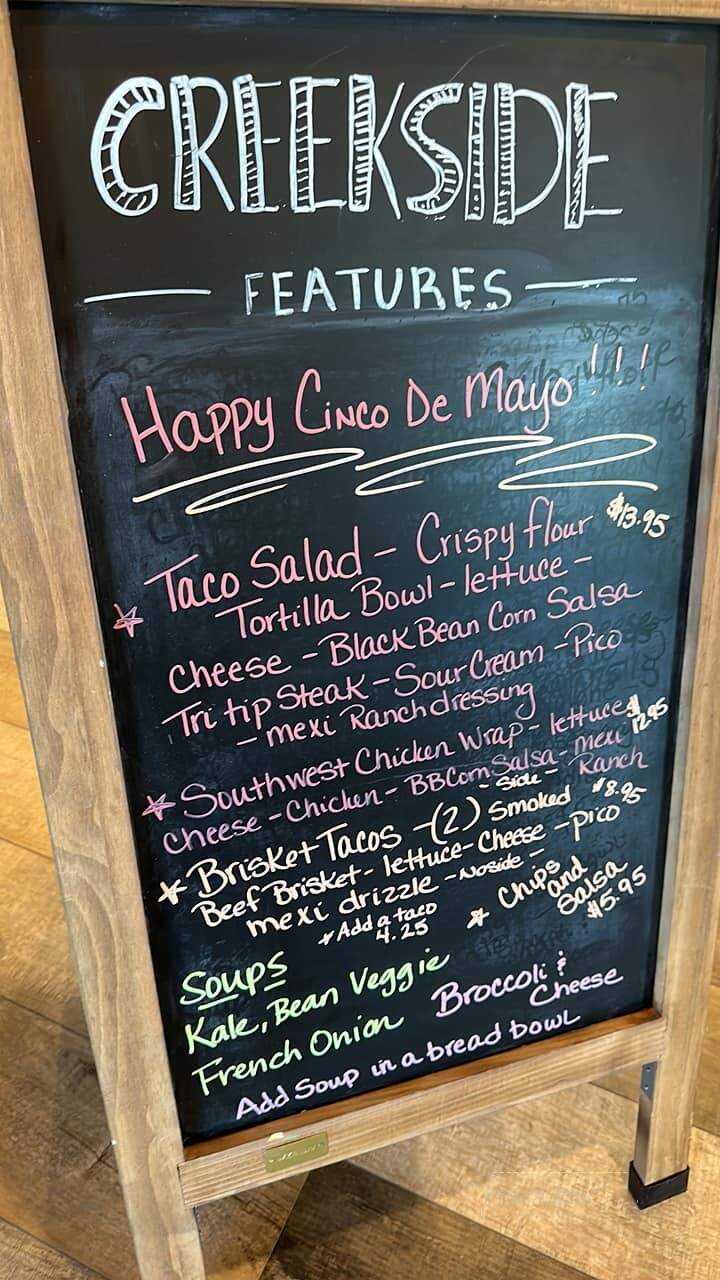 CREEKSIDE
FEATURES
Happy Cinco De Mayo!!!
Taco Salad - Crispy flour $13.95
Tortilla Bowl - lettuce -
Cheese - Black Bean Corn Salsa
Tri tip Steak - Sour Cream - Pico
- mexi Ranch dressing
Southwest Chicken Wrap - lettuce $12.95
Cheese - Chicken - BBCorn Salsa - mexi Ranch
- Side -
Brisket Tacos - (2) Smoked $8.95
Beef Brisket - lettuce - Cheese - Pico
mexi drizzle - No side -
* Add a taco
4.25
* Chips
and
Salsa
$5.95
Soups
Kale, Bean Veggie
French Onion
Broccoli &
Cheese
Add Soup in a bread bowl